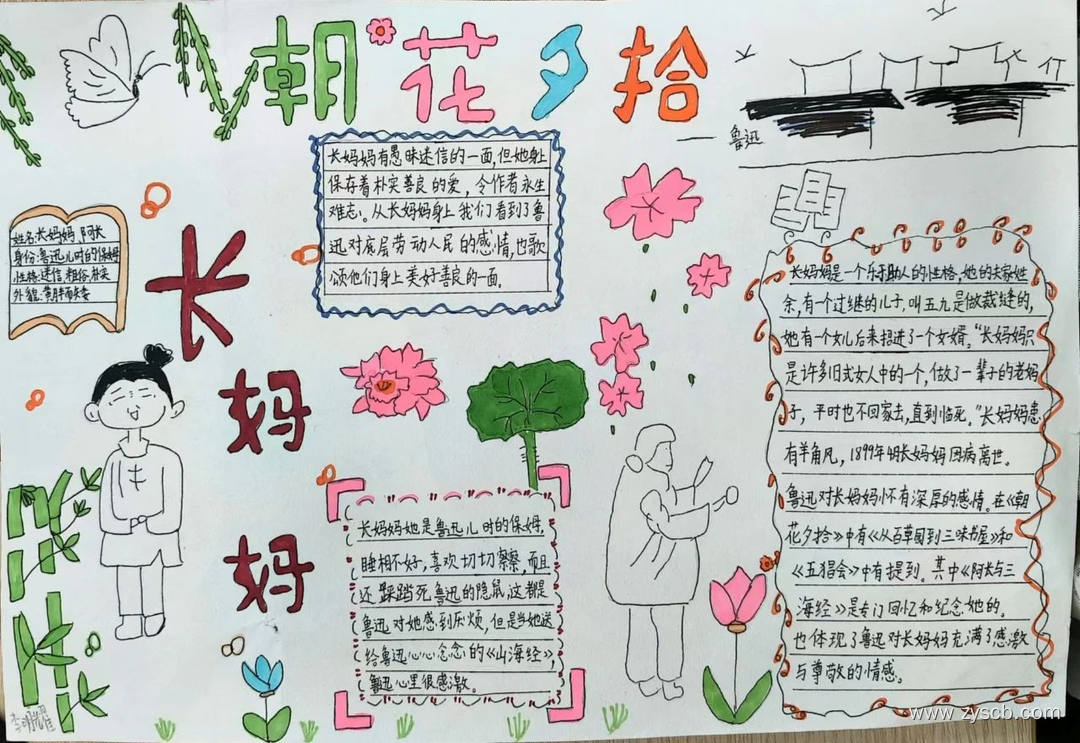 朝花夕拾
——鲁迅
长妈妈有愚昧迷信的一面,但她身上
保存着朴实善良的爱,令作者永生
难忘。从长妈妈身上我们看到了鲁
迅对底层劳动人民的感情,也歌
颂他们身上美好善良的一面。
姓名:长妈妈、阿长
身份:鲁迅儿时的保姆
性格:迷信、粗俗、朴实
外貌:黄胖而矮
长妈妈
长妈妈她是鲁迅儿时的保姆,
睡相不好,喜欢切切察察,而且
还踩踏死鲁迅的隐鼠,这都是
鲁迅对她感到厌烦,但是当她送
给鲁迅心心念念的《山海经》,
鲁迅心里很感激。
长妈妈是一个乐于助人的性格,她的夫家姓
余,有个过继的儿子,叫五九是做裁缝的,
她有一个女儿后来招进了一个女婿。"长妈妈只
是许多旧式女人中的一个,做了一辈子的老妈
子,平时也不回家去,直到临死。"长妈妈患
有羊角风,1899年4月长妈妈因病离世。
鲁迅对长妈妈怀有深厚的感情。在《朝
花夕拾》中有《从百草园到三味书屋》和
《五猖会》中有提到。其中《阿长与三
海经》是专门回忆和纪念她的。
也体现了鲁迅对长妈妈充满了感激
与尊敬的情感。
www.zyscb.com